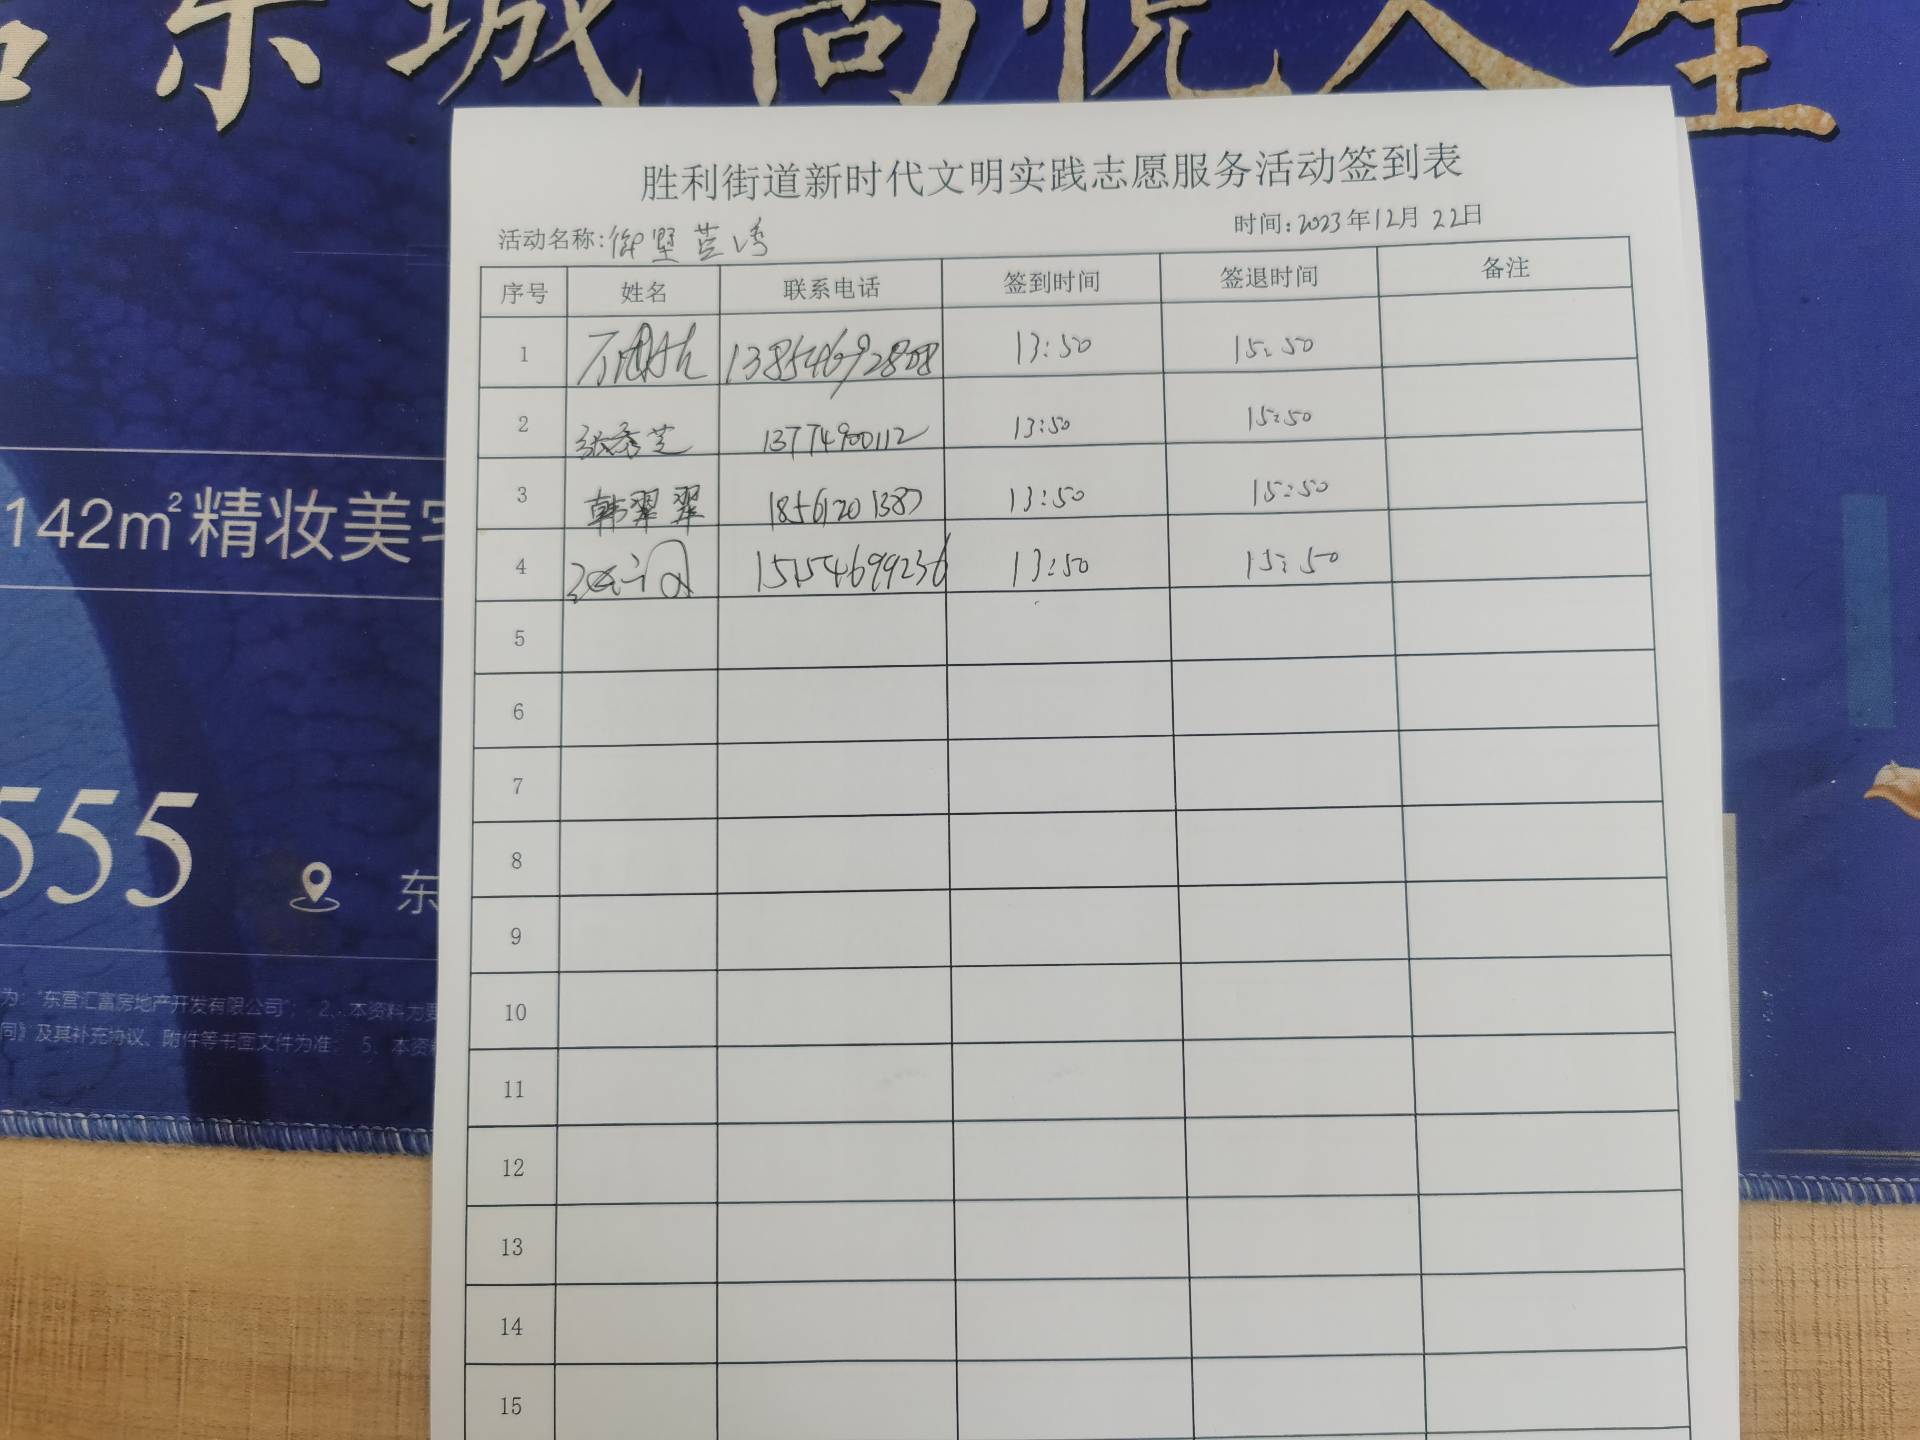 东城尚悦人生
胜利街道新时代文明实践志愿服务活动签到表
活动名称:御墅芸湾
时间:2023年12月22日
序号 姓名 联系电话 签到时间 签退时间 备注
1 13854692808 13:50 15:50
2 张秀芝 13774900112 13:50 15:50
3 韩翠翠 18561201387 13:50 15:50
4 15154699236 13:50 15:50
5
6
7
8
9
10
11
12
13
14
15
142m²精妆美宅
555
东
为:“东营汇富房地产开发有限公司”; 2、本资料为要
同》及其补充协议、附件等书面文件为准; 5、本资料